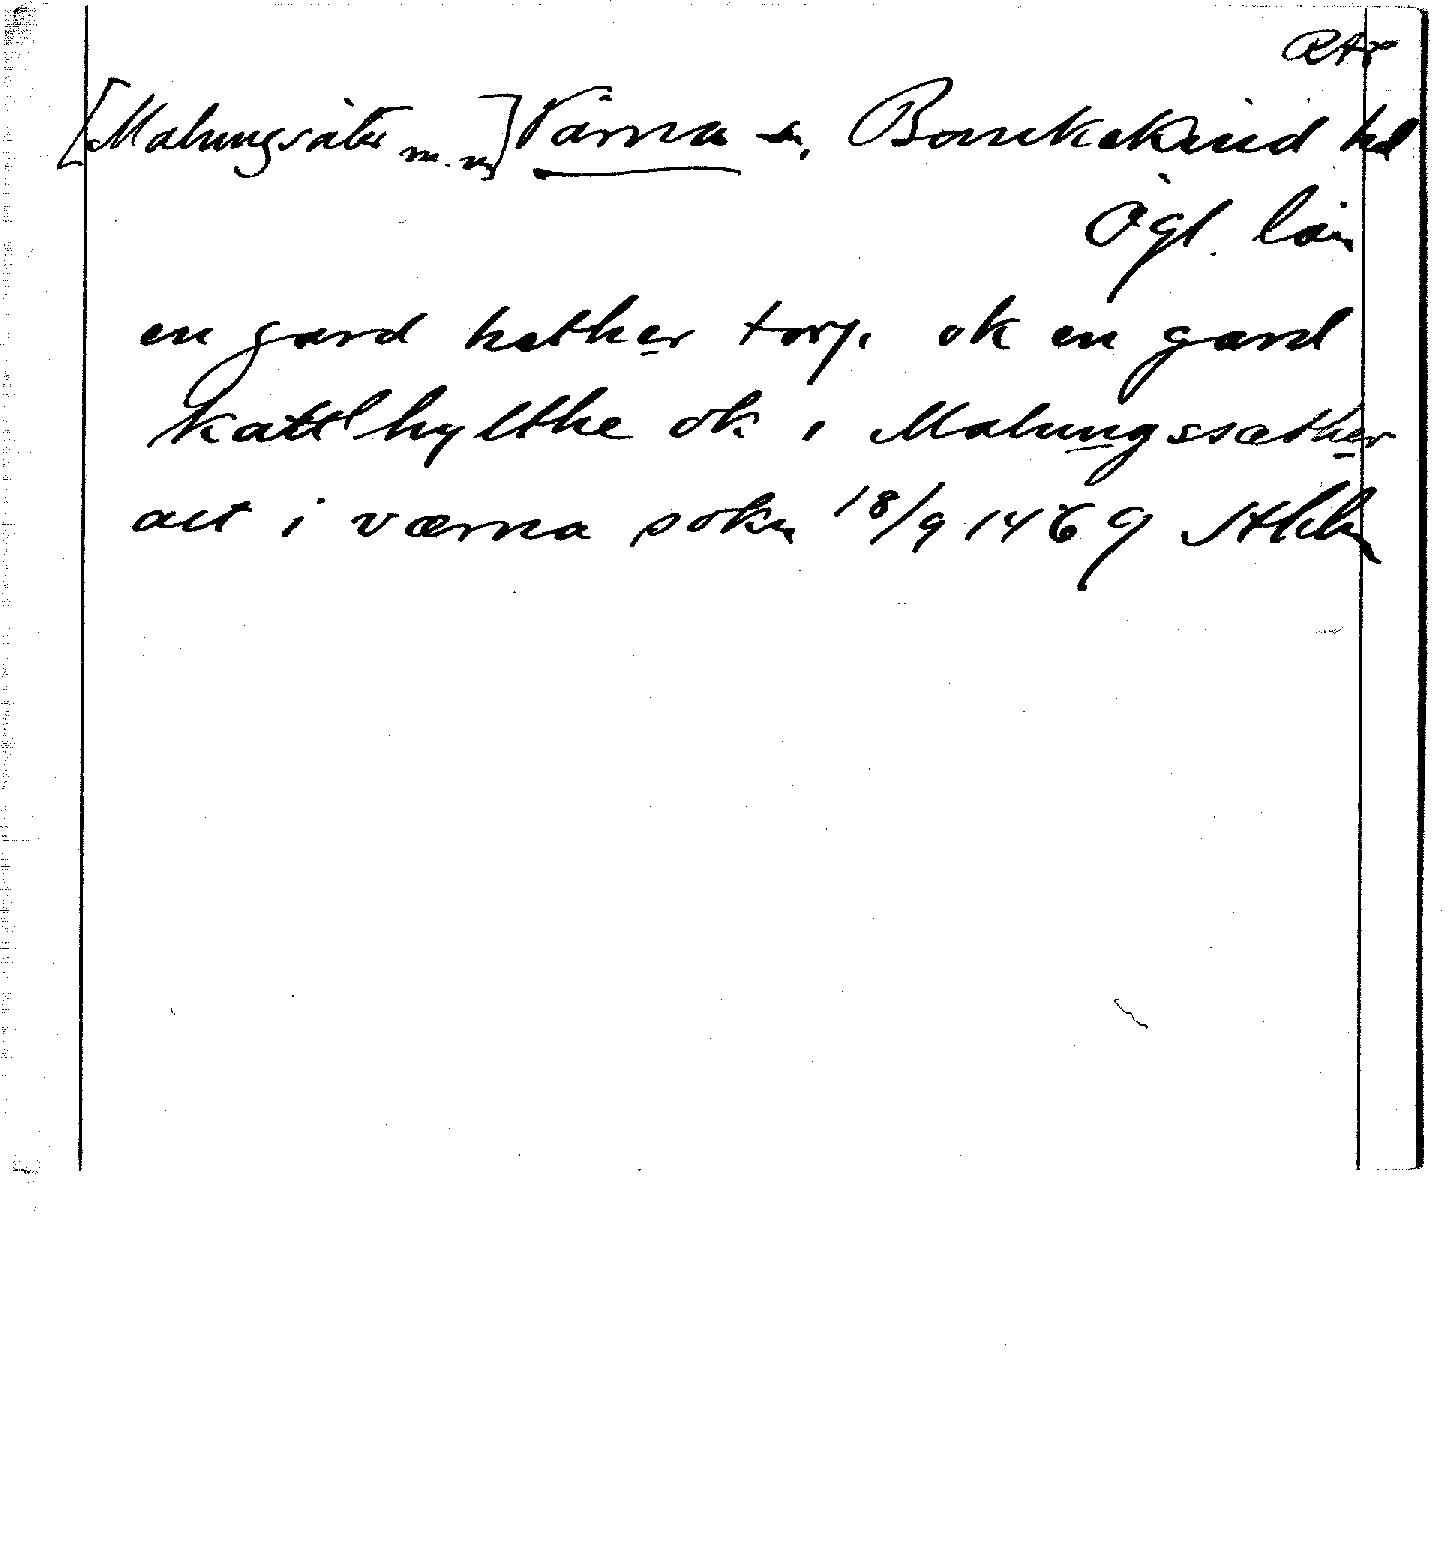 RAp
[Malungsäter m.m] Värna sn, Bankekind hd
Ögl. län
en gard hether torp ok en gard
kattlhylthe ok i Malungssæther
alt i værna sokn 18/9 1469 Sthlm